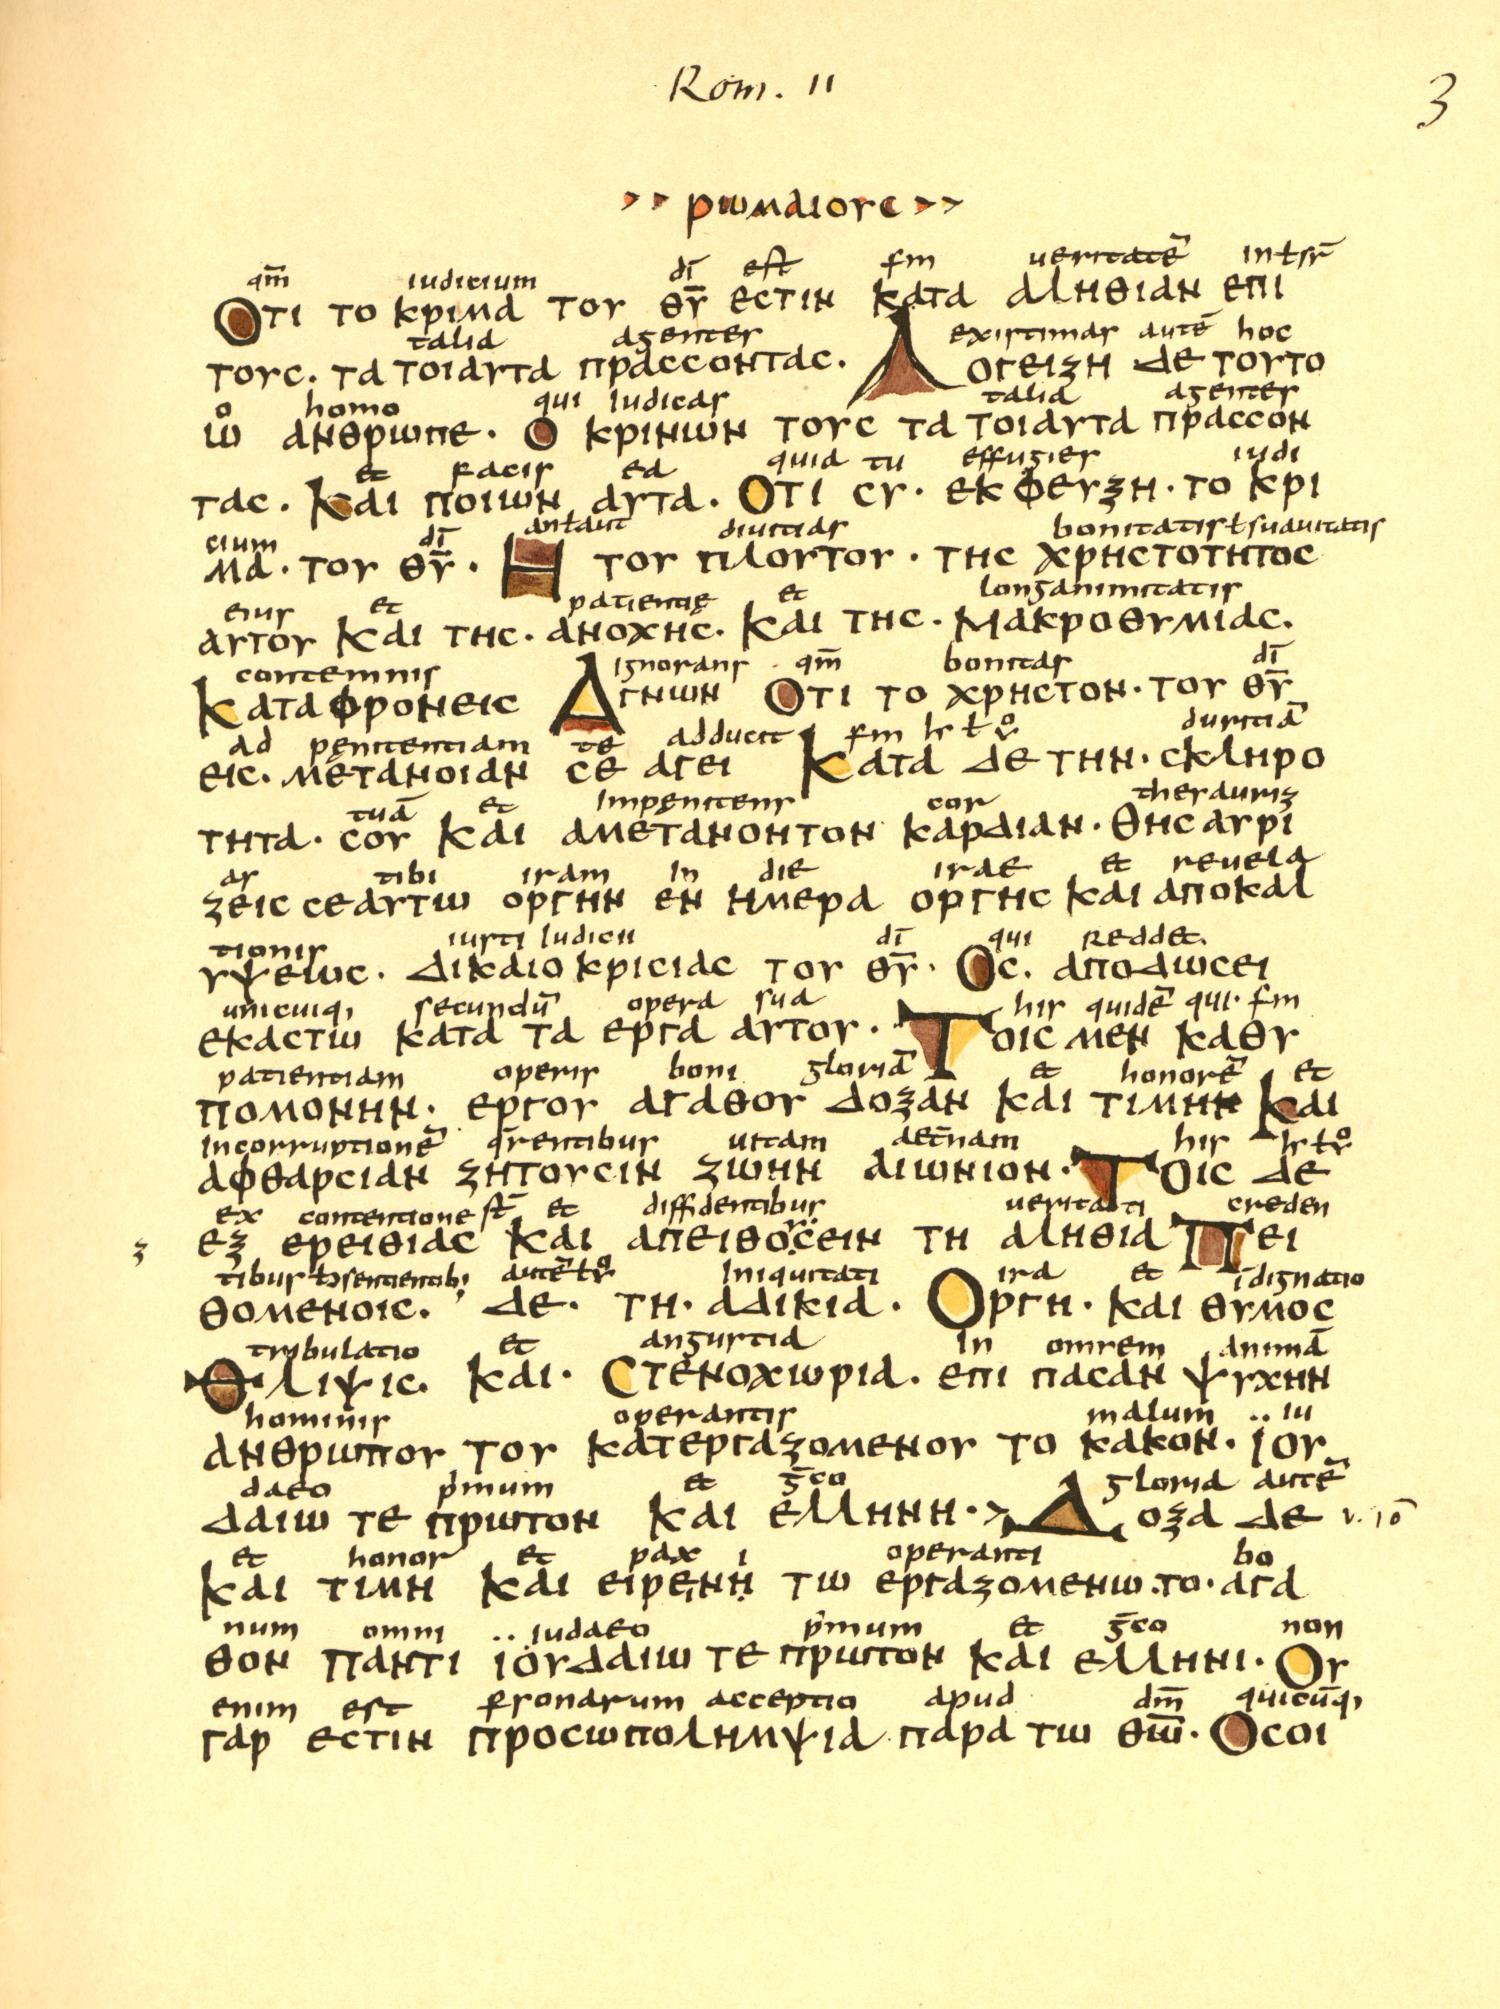 Rom. II
3
>> ρωμαιουc >>
qm̄ iudicium dī est sm ueritatē intsr̄
Οτι το κριμα του θ̅υ̅ εcτιν κατα αληθιαν επι
talia agentes existimas autē hoc
τουc. τα τοιαυτα πραccονταc. Λογειζη δε τουτο
o homo qui iudicas talia agentes
ω ανθρωπε. ο κρινων τουc τα τοιαυτα πραccον
et facis ea quia tu effugies iudi
ταc. Και ποιων αυτα. Οτι cυ. εκφευξη. το κρι
cium dī an ł aut diuitias bonitatis ł suauitatis
μα. του θ̅υ̅. Η του πλουτου. τηc χρηcτοτητοc
eius et patientię et longanimitatis
αυτου Και τηc. ανοχηc. Και τηc. Μακροθυμιαc.
contemnis ignorans qm̄ bonitas dī
Καταφρονειc Αγνων Οτι το χρηcτον. του θ̅υ̅
ad penitentiam te adducit sm duritiā
ειc. μετανοιαν cε αγει Κατα δε την. cκληρο
tuā et impęnitens cor thesauriz
τητα. cου Και αμετανοητον καρδιαν. Θηcαυρι
as tibi iram in die irae et reuela
ζειc cεαυτω οργην εν ημερα οργηc και αποκαλ
tionis iusti iudicii dī qui reddet.
υψεωc. δικαιοκριcιαc του θ̅υ̅. Οc. αποδωcει
unicuiq, secundū opera sua his quidē qui. sm
εκαcτω κατα τα εργα αυτου. Τοιc μεν καθυ
patientiam operis boni gloriā et honorē et
πομονην. εργου αγαθου δοξαν και τιμην Και
incorruptionē qrentibus uitam aet̄nam his
αφθαρcιαν ζητουcιν ζωην αιωνιον. Τοιc δε
ex contentione st̄ et diffidentibus ueritati creden
εξ ερειθιαc και απειθοcειν τη αληθια Πει
tibus ł ɔsentientib, autē iniquitati ira et īdignatio
θομενοιc. δε. τη. αδικια. Οργη. και θυμοc
tribulatio et angustia in omnem animā
Θλιψιc. και. Cτενοχωρια. επι παcαν ψυχην
hominis operantis malum iu
ανθρωπου του κατεργαζομενου το κακον. ϊου
daeo p̄mum et ḡco gloria autē
δαιω τε πρωτον και ελληνη. > Δοξα δε v. 10
et honor et pax operanti bo
και τιμη και ειρενη τω εργαζομενω. το. αγα
num omni iudaeo p̄mum et ḡco non
θον παντι ϊουδαιω τε πρωτον και ελληνι. Ου
enim est psonarum acceptio apud dm̄ quicūq,
γαρ εcτιν προcωπολημψια παρα τω θ̅ω̅. Οcοι